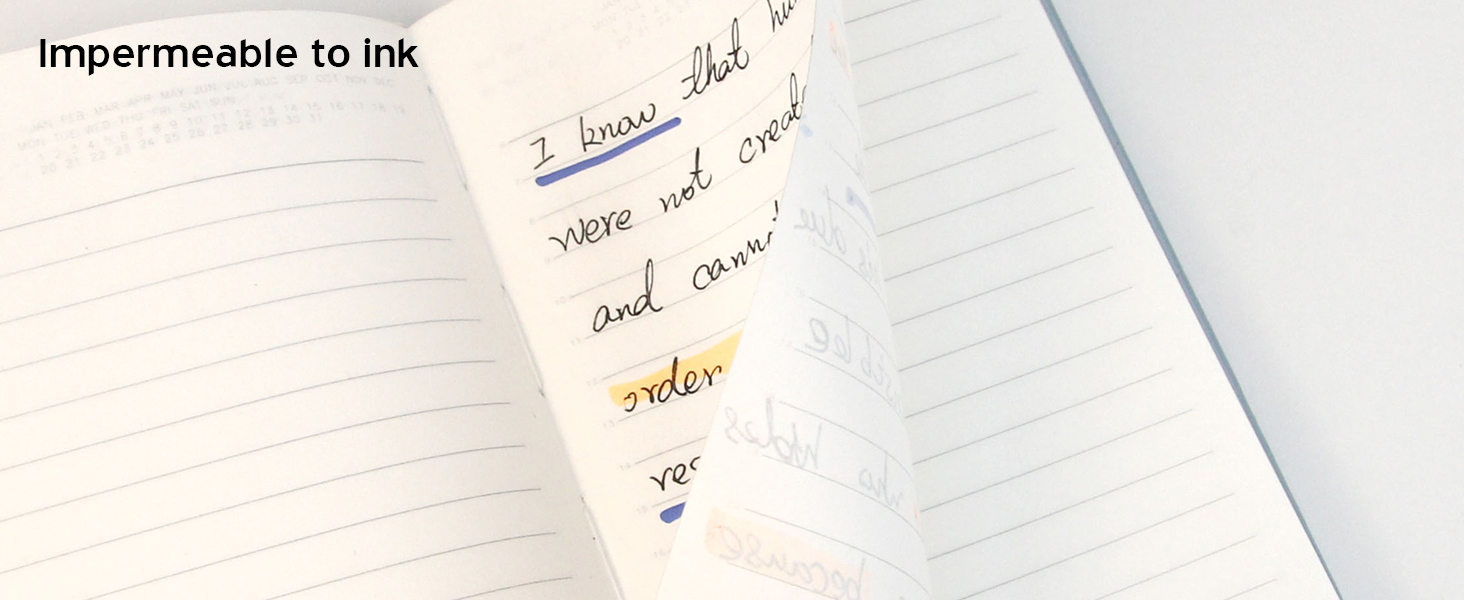 Impermeable to ink
JAN FEB MAR APR MAY JUN JUL AUG SEP OCT NOV DEC
MON TUE WED THU FRI SAT SUN
1 2 3 4 5 6 7 8 9 10 11 12 13 14 15 16 17 18 19
20 21 22 23 24 25 26 27 28 29 30 31
I know that hu
were not creat
and cann
order
res
because